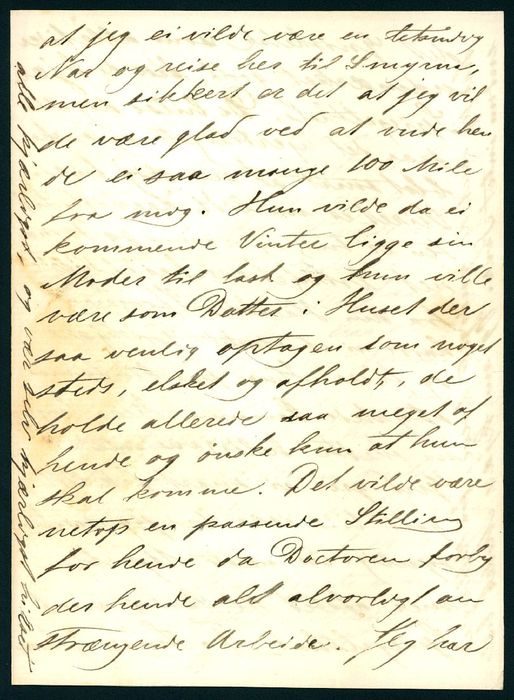 at jeg ei vilde være en
Nar og reise her til Smyrna,
men sikkert er det at jeg vil
de være glad ved at vide hen
de ei saa mange 100 Mile
fra mig. Hun vilde da ei
kommende Vinter ligge sin
Moder til last og hun ville
være som Datter i Huset der
saa venlig optagen som noget
steds, elsket og afholdt, de
holde allerede saa meget af
hende og ønske kun at hun
skal komme. Det vilde være
netop en passende Stilling
for hende da Doctoren forby
der hende alt alvorligt an
strængende Arbeide. Jeg har
alle kjærligst, og vær selv kjærligst hilset